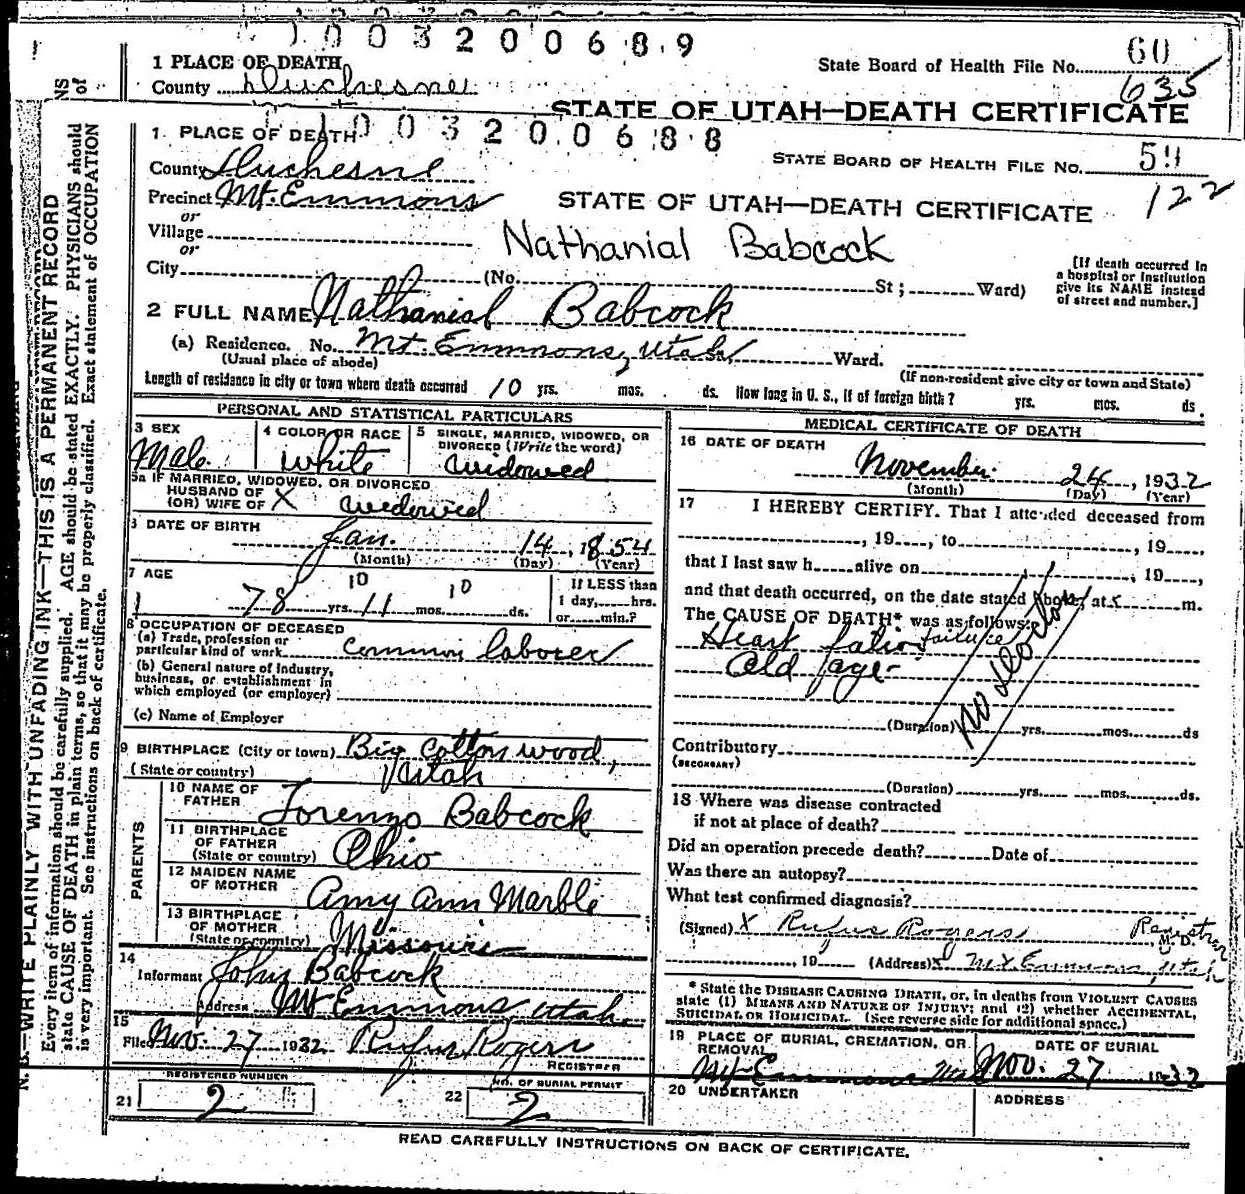 1 0 0 3 2 0 0 6 8 9
1 PLACE OF DEATH
County Duchesne
State Board of Health File No. 60
635
STATE OF UTAH—DEATH CERTIFICATE
1 0 0 3 2 0 0 6 8 8
1. PLACE OF DEATH
County Duchesne
STATE BOARD OF HEALTH FILE NO. 59
122
Precinct Mt. Emmons
STATE OF UTAH—DEATH CERTIFICATE
or
Village
Nathanial Babcock
or
City (No. St; Ward)
[If death occurred in
a hospital or institution
give its NAME instead
of street and number.]
2 FULL NAME Nathanial Babcock
(a) Residence. No. Mt. Emmons, Utah Ward.
(Usual place of abode)
(If non-resident give city or town and State)
Length of residence in city or town where death occurred 10 yrs. mos. ds. How long in U. S., if of foreign birth? yrs. mos. ds.
PERSONAL AND STATISTICAL PARTICULARS
3 SEX
Male
4 COLOR OR RACE
White
5 SINGLE, MARRIED, WIDOWED, OR
DIVORCED (Write the word)
Widowed
5a IF MARRIED, WIDOWED, OR DIVORCED
HUSBAND OF
(OR) WIFE OF X Widowed
DATE OF BIRTH
Jan. 14, 1854
(Month) (Day) (Year)
7 AGE
10 10
78 yrs. 11 mos. ds.
If LESS than
1 day, hrs.
or min.?
8 OCCUPATION OF DECEASED
(a) Trade, profession or
particular kind of work Common laborer
(b) General nature of Industry,
business, or establishment in
which employed (or employer)
(c) Name of Employer
9 BIRTHPLACE (City or town) Big Cottonwood,
(State or country) Utah
PARENTS
10 NAME OF
FATHER Lorenzo Babcock
11 BIRTHPLACE
OF FATHER
(State or country) Ohio
12 MAIDEN NAME
OF MOTHER Amy Ann Marble
13 BIRTHPLACE
OF MOTHER
(State or country) Missouri
14
Informant John Babcock
Address Mt Emmons Utah
15
Filed Nov. 27 1932 Rufus Rogers
REGISTRAR
REGISTERED NUMBER
21 2
NO. OF BURIAL PERMIT
22 2
MEDICAL CERTIFICATE OF DEATH
16 DATE OF DEATH
November 24, 1932
(Month) (Day) (Year)
17 I HEREBY CERTIFY. That I attended deceased from
, 19, to , 19,
that I last saw h alive on , 19,
and that death occurred, on the date stated above, at m.
The CAUSE OF DEATH* was as follows:
Heart failure
Old age
No Doctor
(Duration) yrs. mos. ds
Contributory
(SECONDARY)
(Duration) yrs. mos. ds.
18 Where was disease contracted
if not at place of death?
Did an operation precede death? Date of
Was there an autopsy?
What test confirmed diagnosis?
(Signed) X Rufus Rogers Registrar
M. D.
, 19 (Address) X Mt. Emmons, Utah
* State the DISEASE CAUSING DEATH, or, in deaths from VIOLENT CAUSES
state (1) MEANS AND NATURE OF INJURY; and (2) whether ACCIDENTAL,
SUICIDAL OR HOMICIDAL. (See reverse side for additional space.)
19 PLACE OF BURIAL, CREMATION, OR
REMOVAL
Mt Emmons
DATE OF BURIAL
Nov. 27 1932
20 UNDERTAKER
ADDRESS
READ CAREFULLY INSTRUCTIONS ON BACK OF CERTIFICATE.
N. B.—WRITE PLAINLY WITH UNFADING INK—THIS IS A PERMANENT RECORD
Every item of information should be carefully supplied. AGE should be stated EXACTLY. PHYSICIANS should
state CAUSE OF DEATH in plain terms, so that it may be properly classified. Exact statement of OCCUPATION
is very important. See instructions on back of certificate.